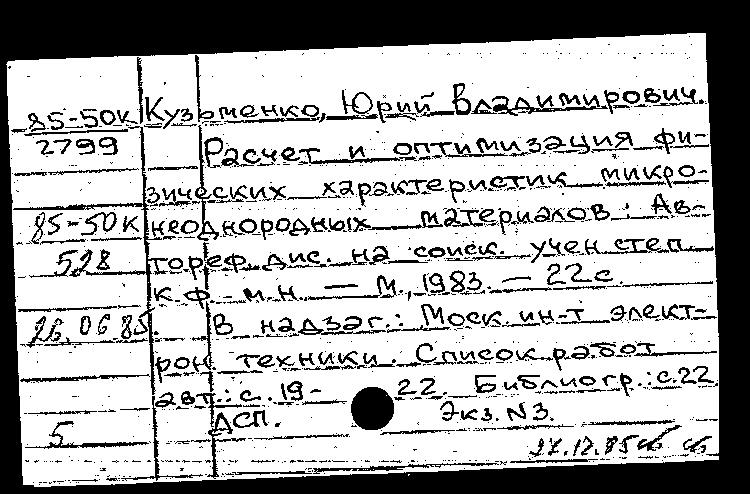 85-50к Кузьменко, Юрий Владимирович.
2799 Расчет и оптимизация фи-
зических характеристик микро-
85-50к неоднородных материалов: Ав-
528 тореф. дис. на соиск. учен. степ.
к.ф.-м.н. — М., 1983. — 22 с.
26.06.85. В надзаг.: Моск. ин-т элект-
рон. техники. Список работ
авт.: с. 19-22. Библиогр.: с. 22
5 ДСП. Экз. N3.
27.12.85